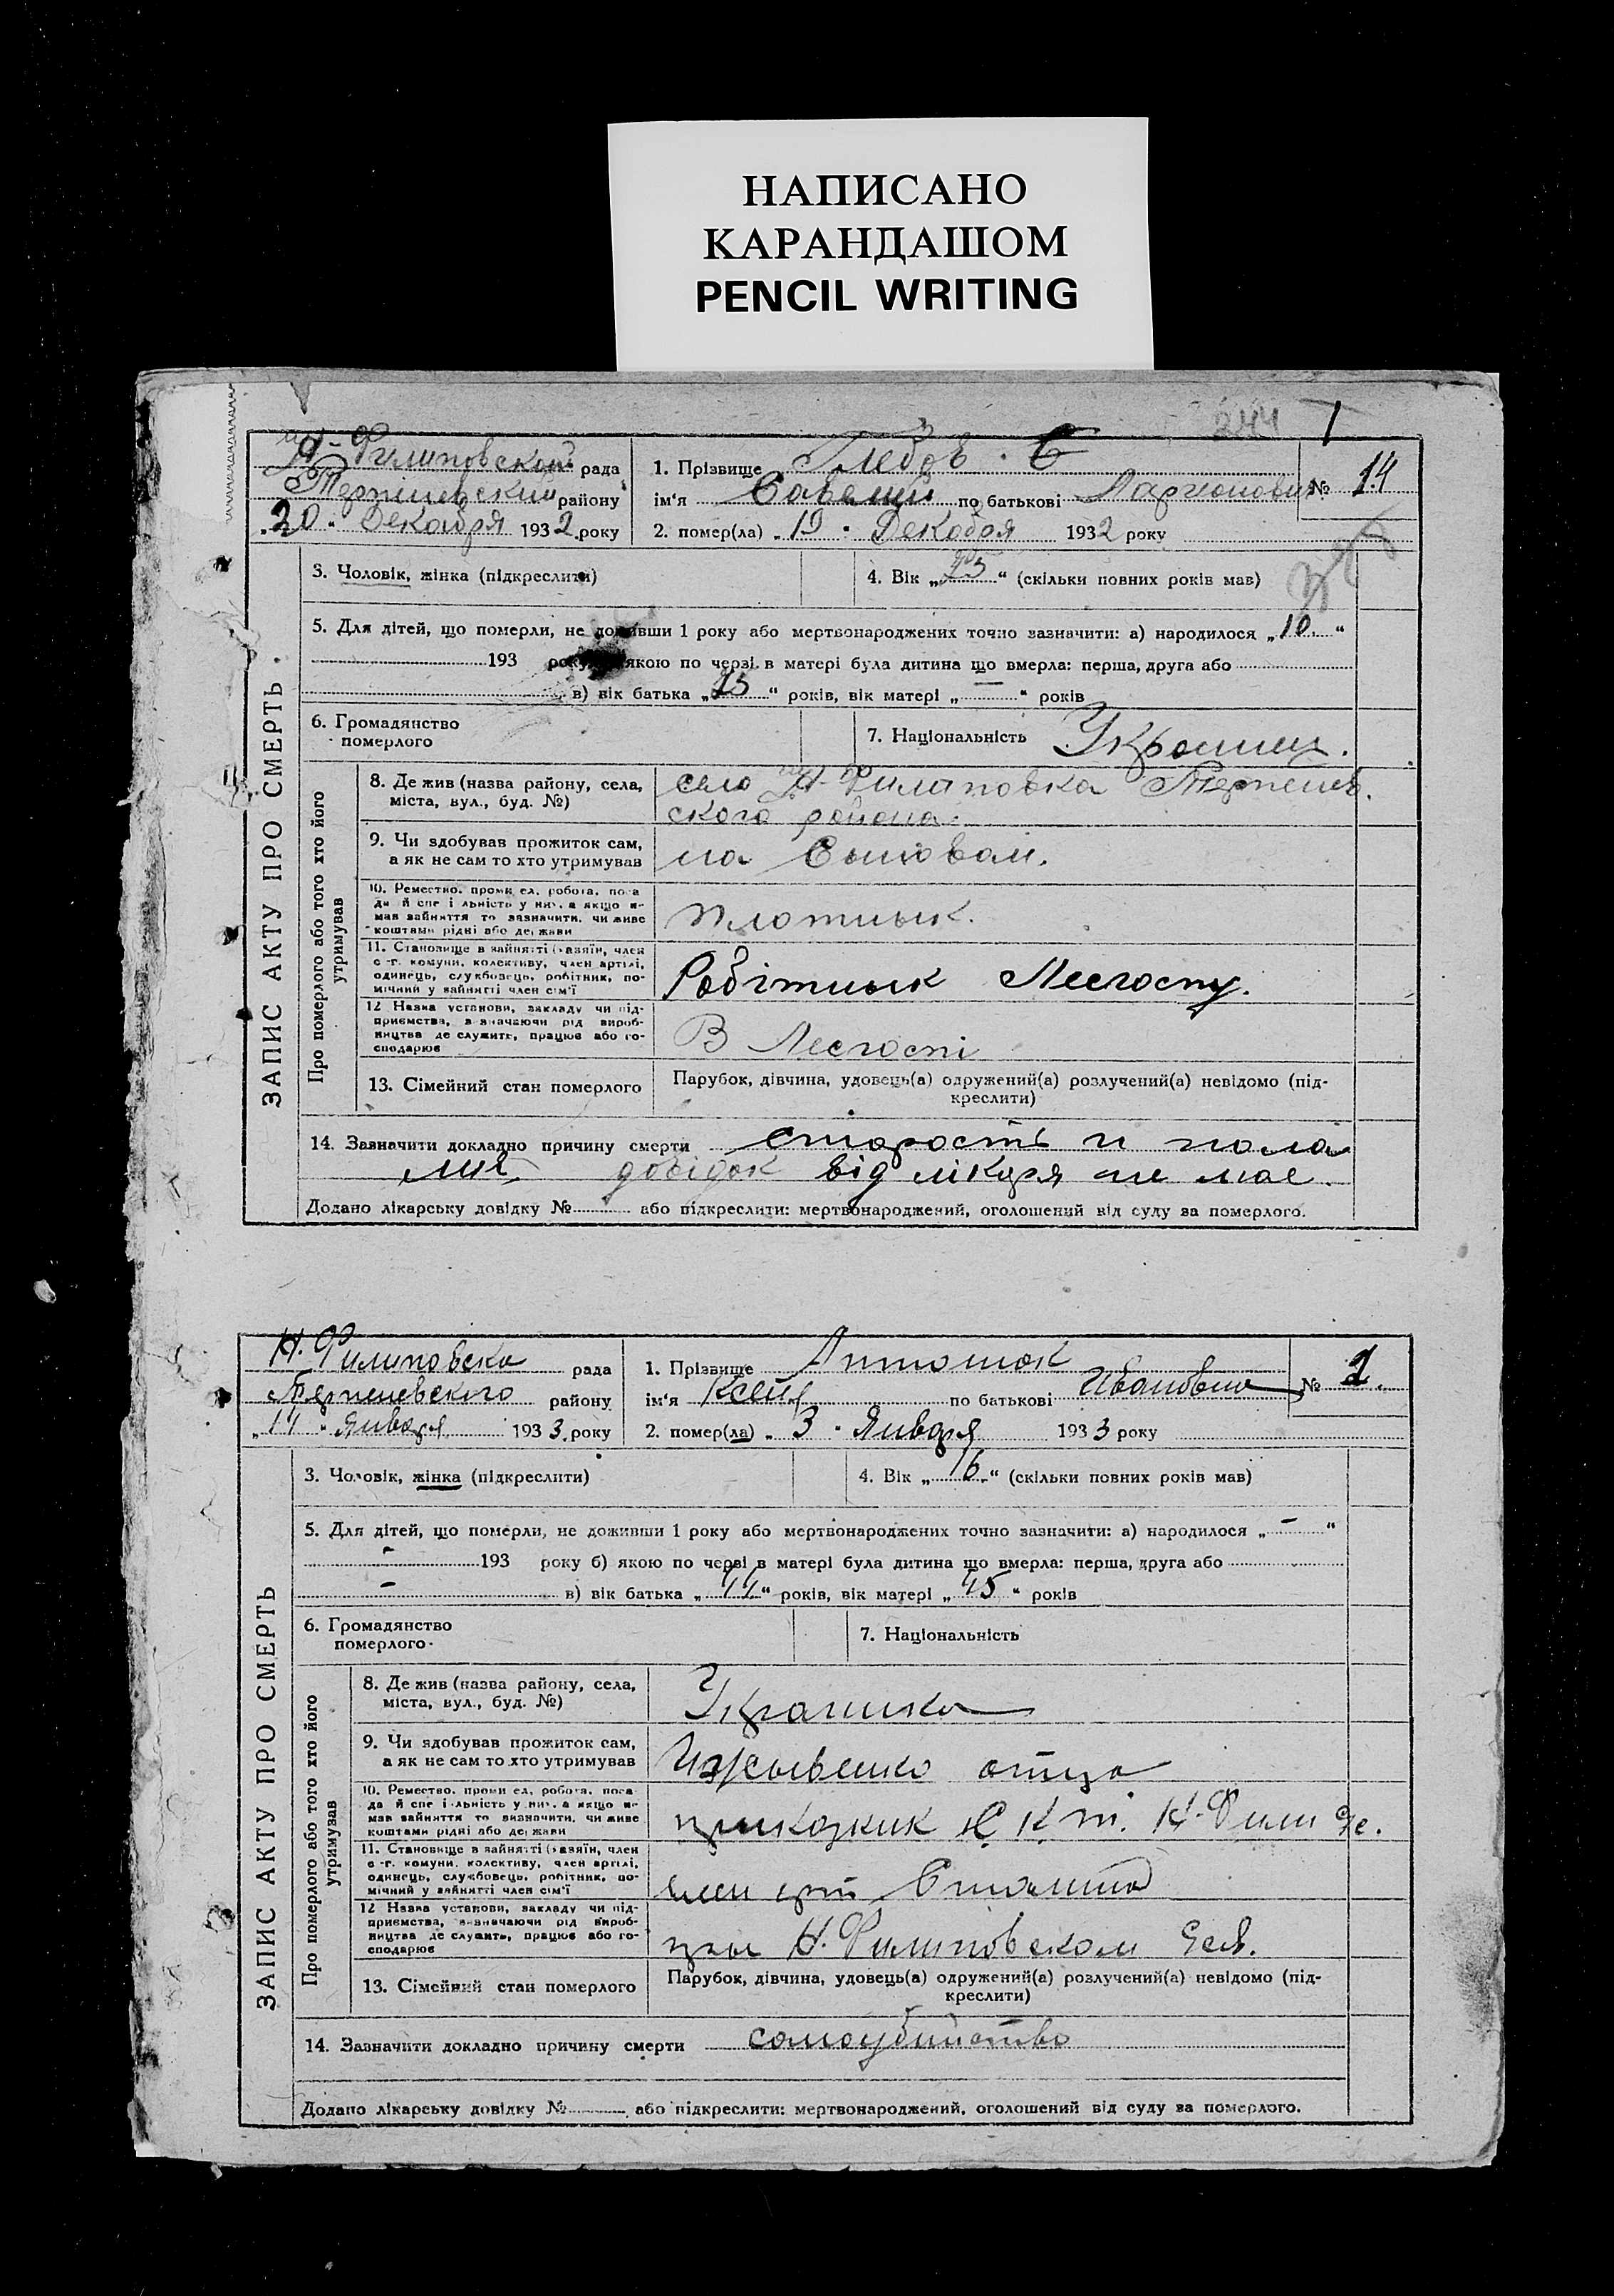 НАПИСАНО
КАРАНДАШОМ
PENCIL WRITING
244
Н-Филиповской рада
району
"20" Декабря 1932 року
1. Прізвище Глебов
№ 14
ім'я по батькові Ларионович
2. помер(ла) "19" Декабря 1932 року
ЗАПИС АКТУ ПРО СМЕРТЬ.
3. Чоловік, жінка (підкреслити)
4. Вік " " (скільки повних років мав)
5. Для дітей, що померли, не доживши 1 року або мертвонароджених точно зазначити: а) народилося "10."
193 року якою по черзі в матері була дитина що вмерла: перша, друга або
в) вік батька " " років, вік матері " " років
6. Громадянство
померлого
7. Національність Украинец.
Про померлого або того хто його
утримував
8. Де жив (назва району, села,
міста, вул., буд. №)
село Н-Филиповка
ского района.
9. Чи здобував прожиток сам,
а як не сам то хто утримував
на
10. Ремество, промисел, робота, поса-
да й спеціяльність у них, а якщо н-
мав зайняття то зазначити, чи живе
коштами рідні або держави
плотник.
11. Становище в зайнятті (хазяїн, член
с-г. комуни, колективу, член артілі,
одинець, службовець, робітник, по-
мічний у зайнятті член сім'ї
Робітник Лесгоспу.
12 Назва установи, закладу чи під-
приємства, визначаючи рід вироб-
ництва де служить, працює або го-
сподарює
В Лесгоспі
13. Сімейний стан померлого
Парубок, дівчина, удовець(а) одружений(а) розлучений(а) невідомо (під-
креслити)
14. Зазначити докладно причину смерти старость и
довідок від лікаря не має.
Додано лікарську довідку № або підкреслити: мертвонароджений, оголошений від суду за померлого.
Н. Филиповска рада
району
" " Января 1933 року
1. Прізвище Антонюк
№ 1.
ім'я по батькові Ивановна
2. помер(ла) "3" Января 1933 року
ЗАПИС АКТУ ПРО СМЕРТЬ
3. Чоловік, жінка (підкреслити)
4. Вік "16" (скільки повних років мав)
5. Для дітей, що померли, не доживши 1 року або мертвонароджених точно зазначити: а) народилося "-"
- 193 року б) якою по черзі в матері була дитина що вмерла: перша, друга або
- в) вік батька " " років, вік матері "45" років
6. Громадянство
померлого
7. Національність
Про померлого або того хто його
утримував
8. Де жив (назва району, села,
міста, вул., буд. №)
Украинка
9. Чи здобував прожиток сам,
а як не сам то хто утримував
отца
10. Ремество, промисел, робота, поса-
да й спеціяльність у них, а якщо н-
мав зайняття то визначити, чи живе
коштами рідні або держави
11. Становище в зайнятті (хазяїн, член
с-г. комуни, колективу, член артілі,
одинець, службовець, робітник, по-
мічний у зайнятті член сім'ї
член арт Сталина
12 Назва установи, закладу чи під-
приємства, визначаючи рід вироб-
ництва де служить, працює або го-
сподарює
при Н. Филиповском
13. Сімейний стан померлого
Парубок, дівчина, удовець(а) одружений(а) розлучений(а) невідомо (під-
креслити)
14. Зазначити докладно причину смерти самоубийство
Додано лікарську довідку № або підкреслити: мертвонароджений, оголошений від суду за померлого.